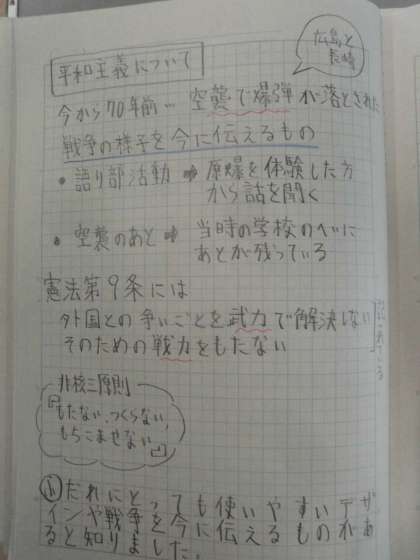 広島と
長崎
平和主義について
今から70年前… 空襲で爆弾が落とされた
戦争の様子を今に伝えるもの
・語り部活動 ⇒ 原爆を体験した方
から話を聞く
・空襲のあと ⇒ 当時の学校のへいに
あとが残っている
憲法第9条には
外国との争いごとを武力で解決しない
そのための戦力をもたない
非核三原則
「もたない、つくらない、
もちこませない」
㋛だれにとっても使いやすいデザ
インや戦争を今に伝えるものがあ
ると知りました。